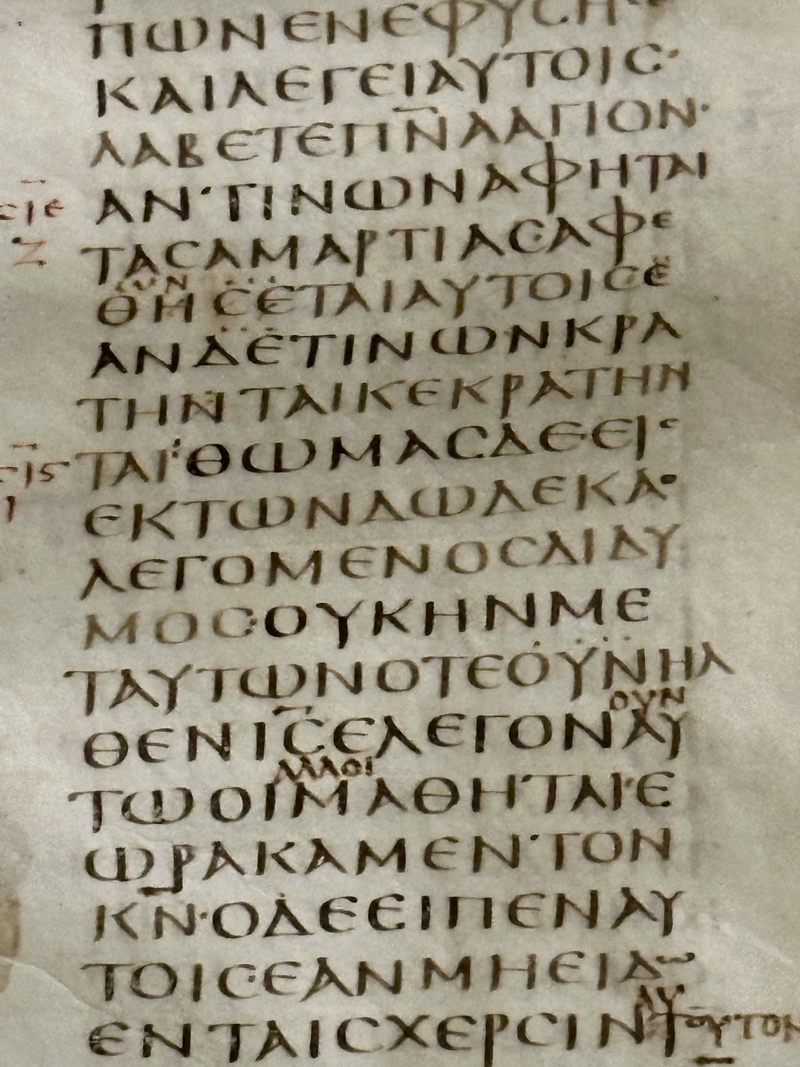 ΠΩΝΕΝΕΦΥCΗ
ΚΑΙΛΕΓΕΙΑΥΤΟΙC·
ΛΑΒΕΤΕΠ̅Ν̅ΑΑΓΙΟΝ·
ΑΝ·ΤΙΝΩΝΑΦΗΤΑΙ
ΤΑCΑΜΑΡΤΙΑCΑΦΕ
ΘΗCΕΤΑΙΑΥΤΟΙCΕ
ΑΝΔΕΤΙΝΩΝΚΡΑ
ΤΗΝΤΑΙΚΕΚΡΑΤΗΝ
ΤΑΙ·ΘΩΜΑCΔΕΕΙC
ΕΚΤΩΝΔΩΔΕΚΑ·
ΛΕΓΟΜΕΝΟCΔΙΔΥ
ΜΟC·ΟΥΚΗΝΜΕ
ΤΑΥΤΩΝΟΤΕΟΥΝΗΛ
ΟΥΝ
ΘΕΝΙ̅C̅ΕΛΕΓΟΝΑΥ
ΑΛΛΟΙ
ΤΩΟΙΜΑΘΗΤΑΙ·Ε
ΩΡΑΚΑΜΕΝ·ΤΟΝ
Κ̅Ν̅·ΟΔΕΕΙΠΕΝΑΥ
ΤΟΙC·ΕΑΝΜΗΕΙΔΩ
ΑΥ
ΕΝΤΑΙCΧΕΡCΙΝΤΟΥΤΟΝ